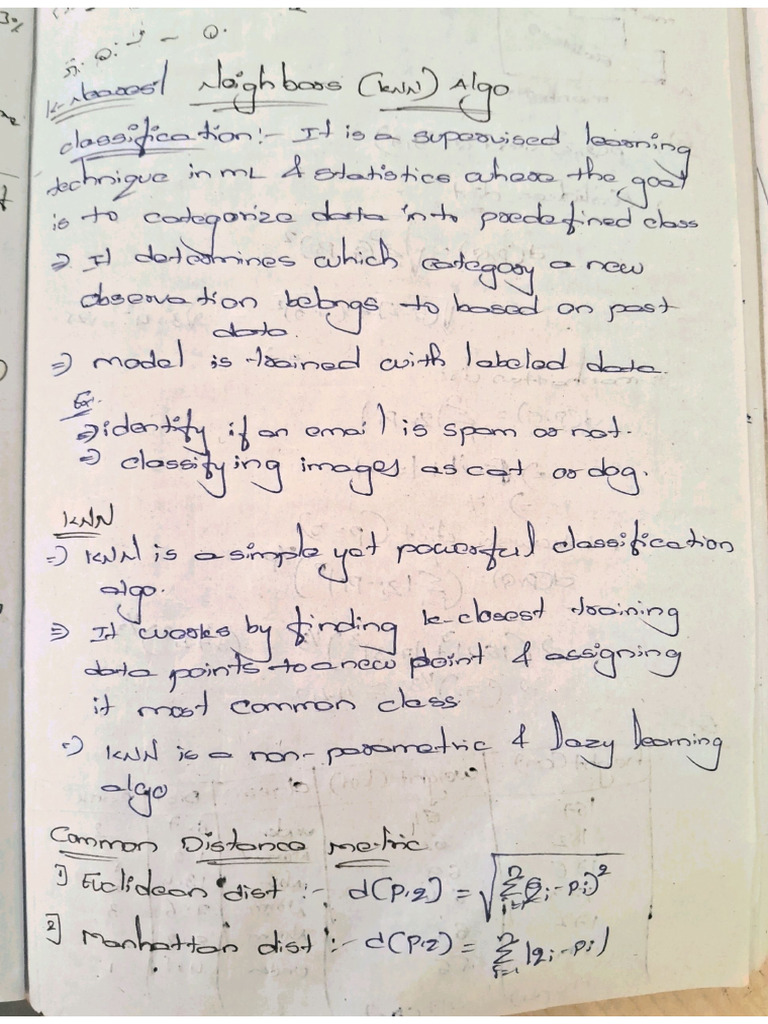 K-Nearest Neighbors (KNN) Algo
classification:- It is a supervised learning
technique in ML & statistics where the goal
is to categorize data into predefined class
⇒ It determines which category a new
observation belongs to based on past
data.
⇒ model is trained with labeled data.
Ex.
⇒ identify if an email is spam or not.
⇒ classifying images as cat or dog.
KNN
⇒ KNN is a simple yet powerful classification
algo.
⇒ It works by finding k-closest training
data points to a new point & assigning
it most common class
⇒ KNN is a non-parametric & lazy learning
algo
Common Distance metric
1] Euclidean dist :- d(p,q) = √ⁿΣᵢ₌₁(qᵢ-pᵢ)²
2] Manhattan dist :- d(p,q) = ⁿΣᵢ₌₁|qᵢ-pᵢ|